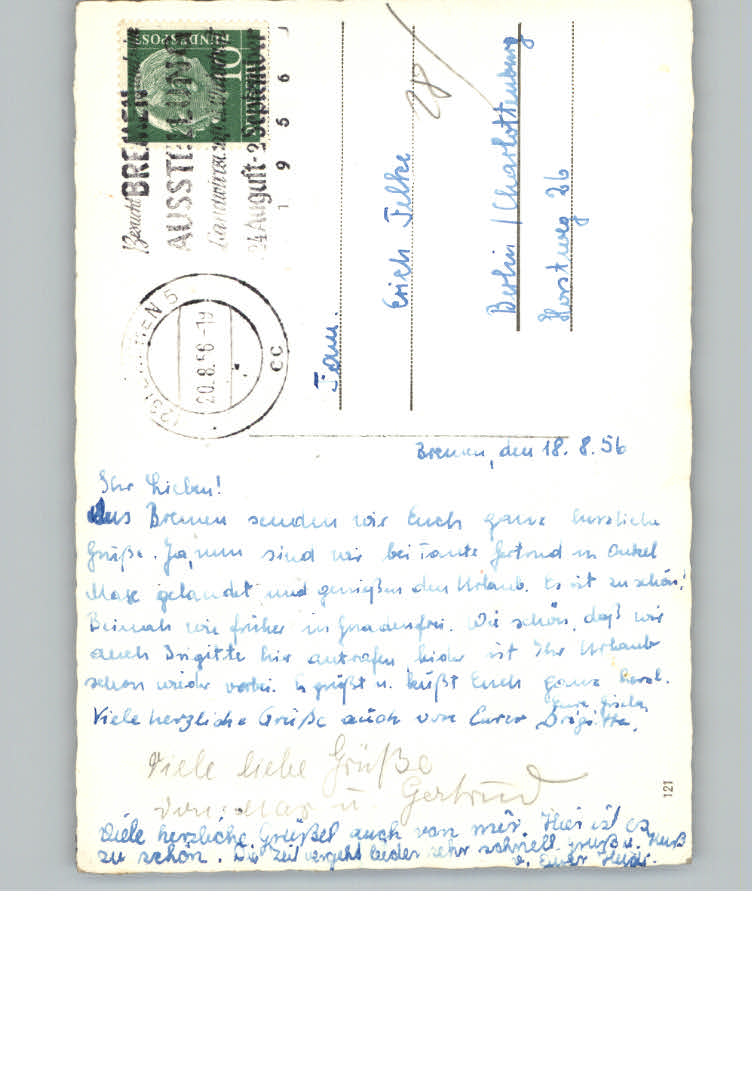 BUNDESPOST
10
Besucht BREMEN
AUSSTELLUNG
24 August - 2 September
1 9 5 6
BREMEN 5
20.8.56-19
cc
28/
Fam.
Erich Felke
Berlin / Charlottenburg
Horstweg 26
Bremen, den 18. 8. 56
Ihr Lieben!
Aus Bremen senden wir Euch ganz herzliche
Grüße. Ja, nun sind wir bei Tante Gertrud u. Onkel
Max gelandet und genießen den Urlaub. Es ist zu schön!
Beinah wie früher in Gnadenfrei. Wie schön, daß wir
auch Brigitte hier antrafen, leider ist Ihr Urlaub
schon wieder vorbei. Es grüßt u. küßt Euch ganz herzl.
Eure Gisela
Viele herzliche Grüße auch von Eurer Brigitte.
Viele liebe Grüße
von Max u. Gertrud
Viele herzliche Grüße auch von mir. Hier ist es
zu schön. Die Zeit vergeht leider sehr schnell. Gruß u. Kuß
v. Eurer Heidi.
121